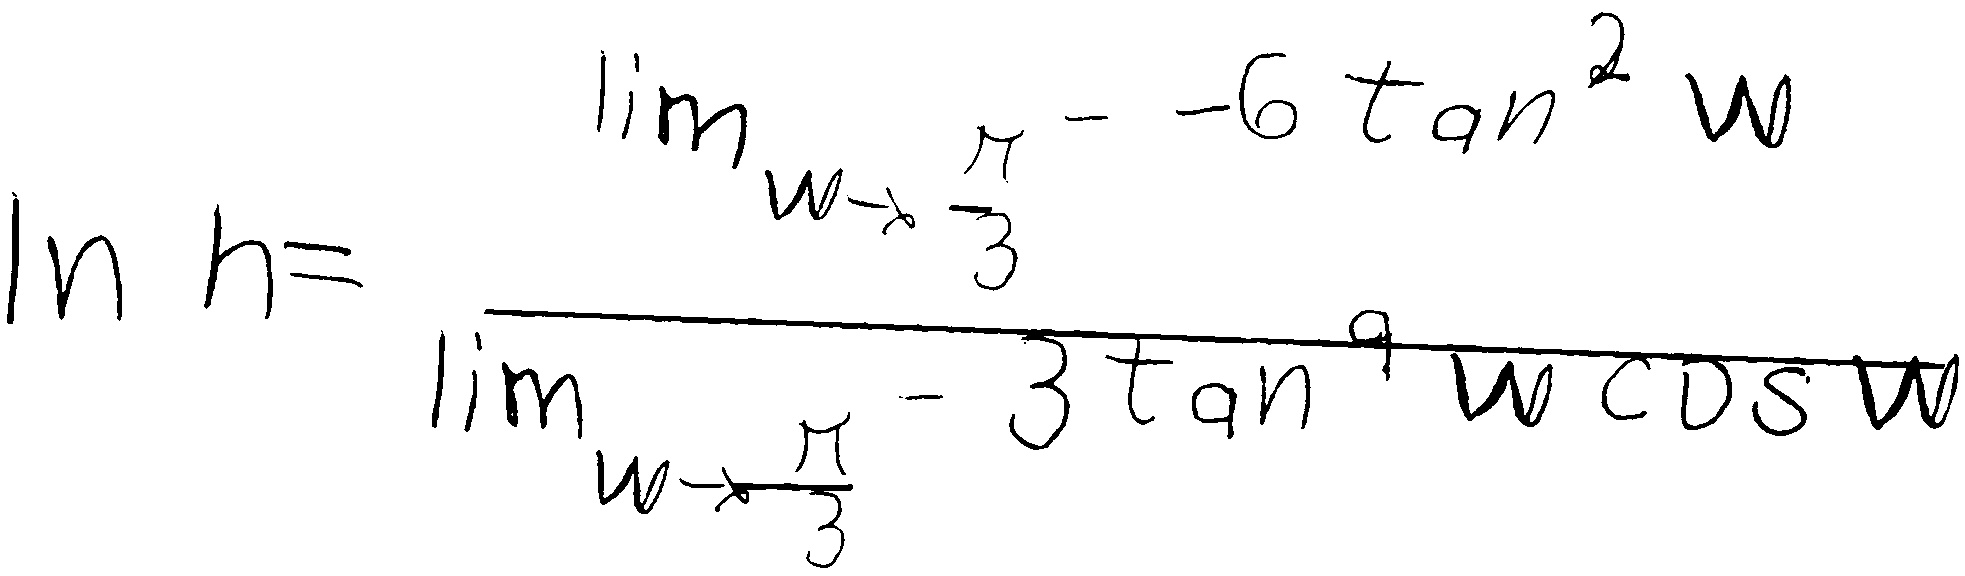 \ln h = \frac{\lim_{w \to \frac{\pi}{3}^{-}} -6 \tan^{2} w}{\lim_{w \to \frac{\pi}{3}^{-}} 3 \tan^{9} w \cos w}